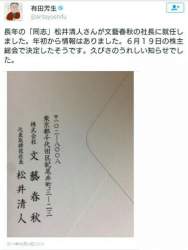 有田芳生
@aritayoshifu
長年の「同志」松井清人さんが文藝春秋の社長に就任
しました。年初から情報はありました。6月19日の株主
総会で決定したそうです。久びさのうれしい知らせでし
た。
〒102-8008
東京都千代田区紀尾井町三-二三
株式会社 文藝春秋
代表取締役社長
松井清人